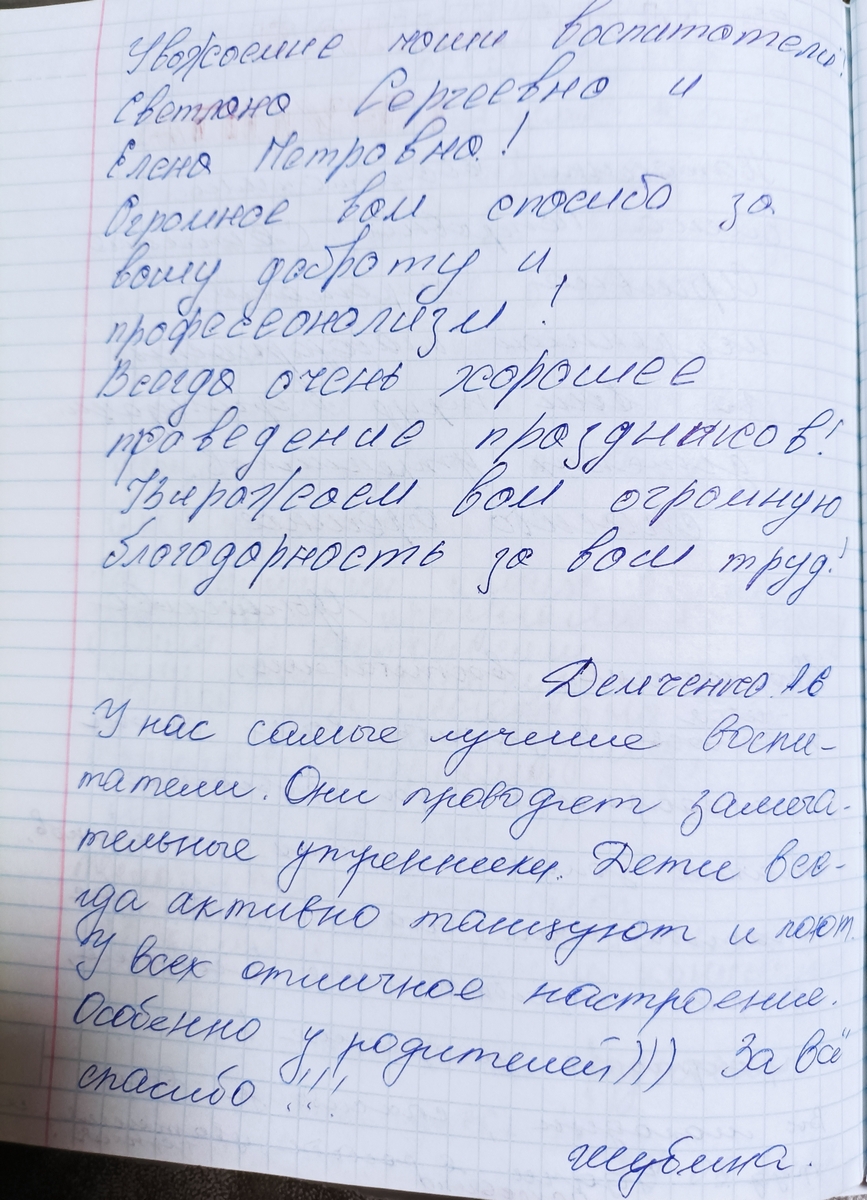 Уважаемые наши воспитатели!
Светлана Сергеевна и
Елена Петровна!
Огромное вам спасибо за
вашу доброту и
професеонализм!
Всегда очень хорошее
проведение праздников!
Выражаем вам огромную
благодарность за ваш труд!
Демченко. А В
У нас самые лучшие воспи-
татели. Они проводят замеча-
тельные утренники. Дети все-
гда активно танцуют и поют.
У всех отличное настроение.
Особенно у родителей))) За всё
спасибо!!!
Шубина.